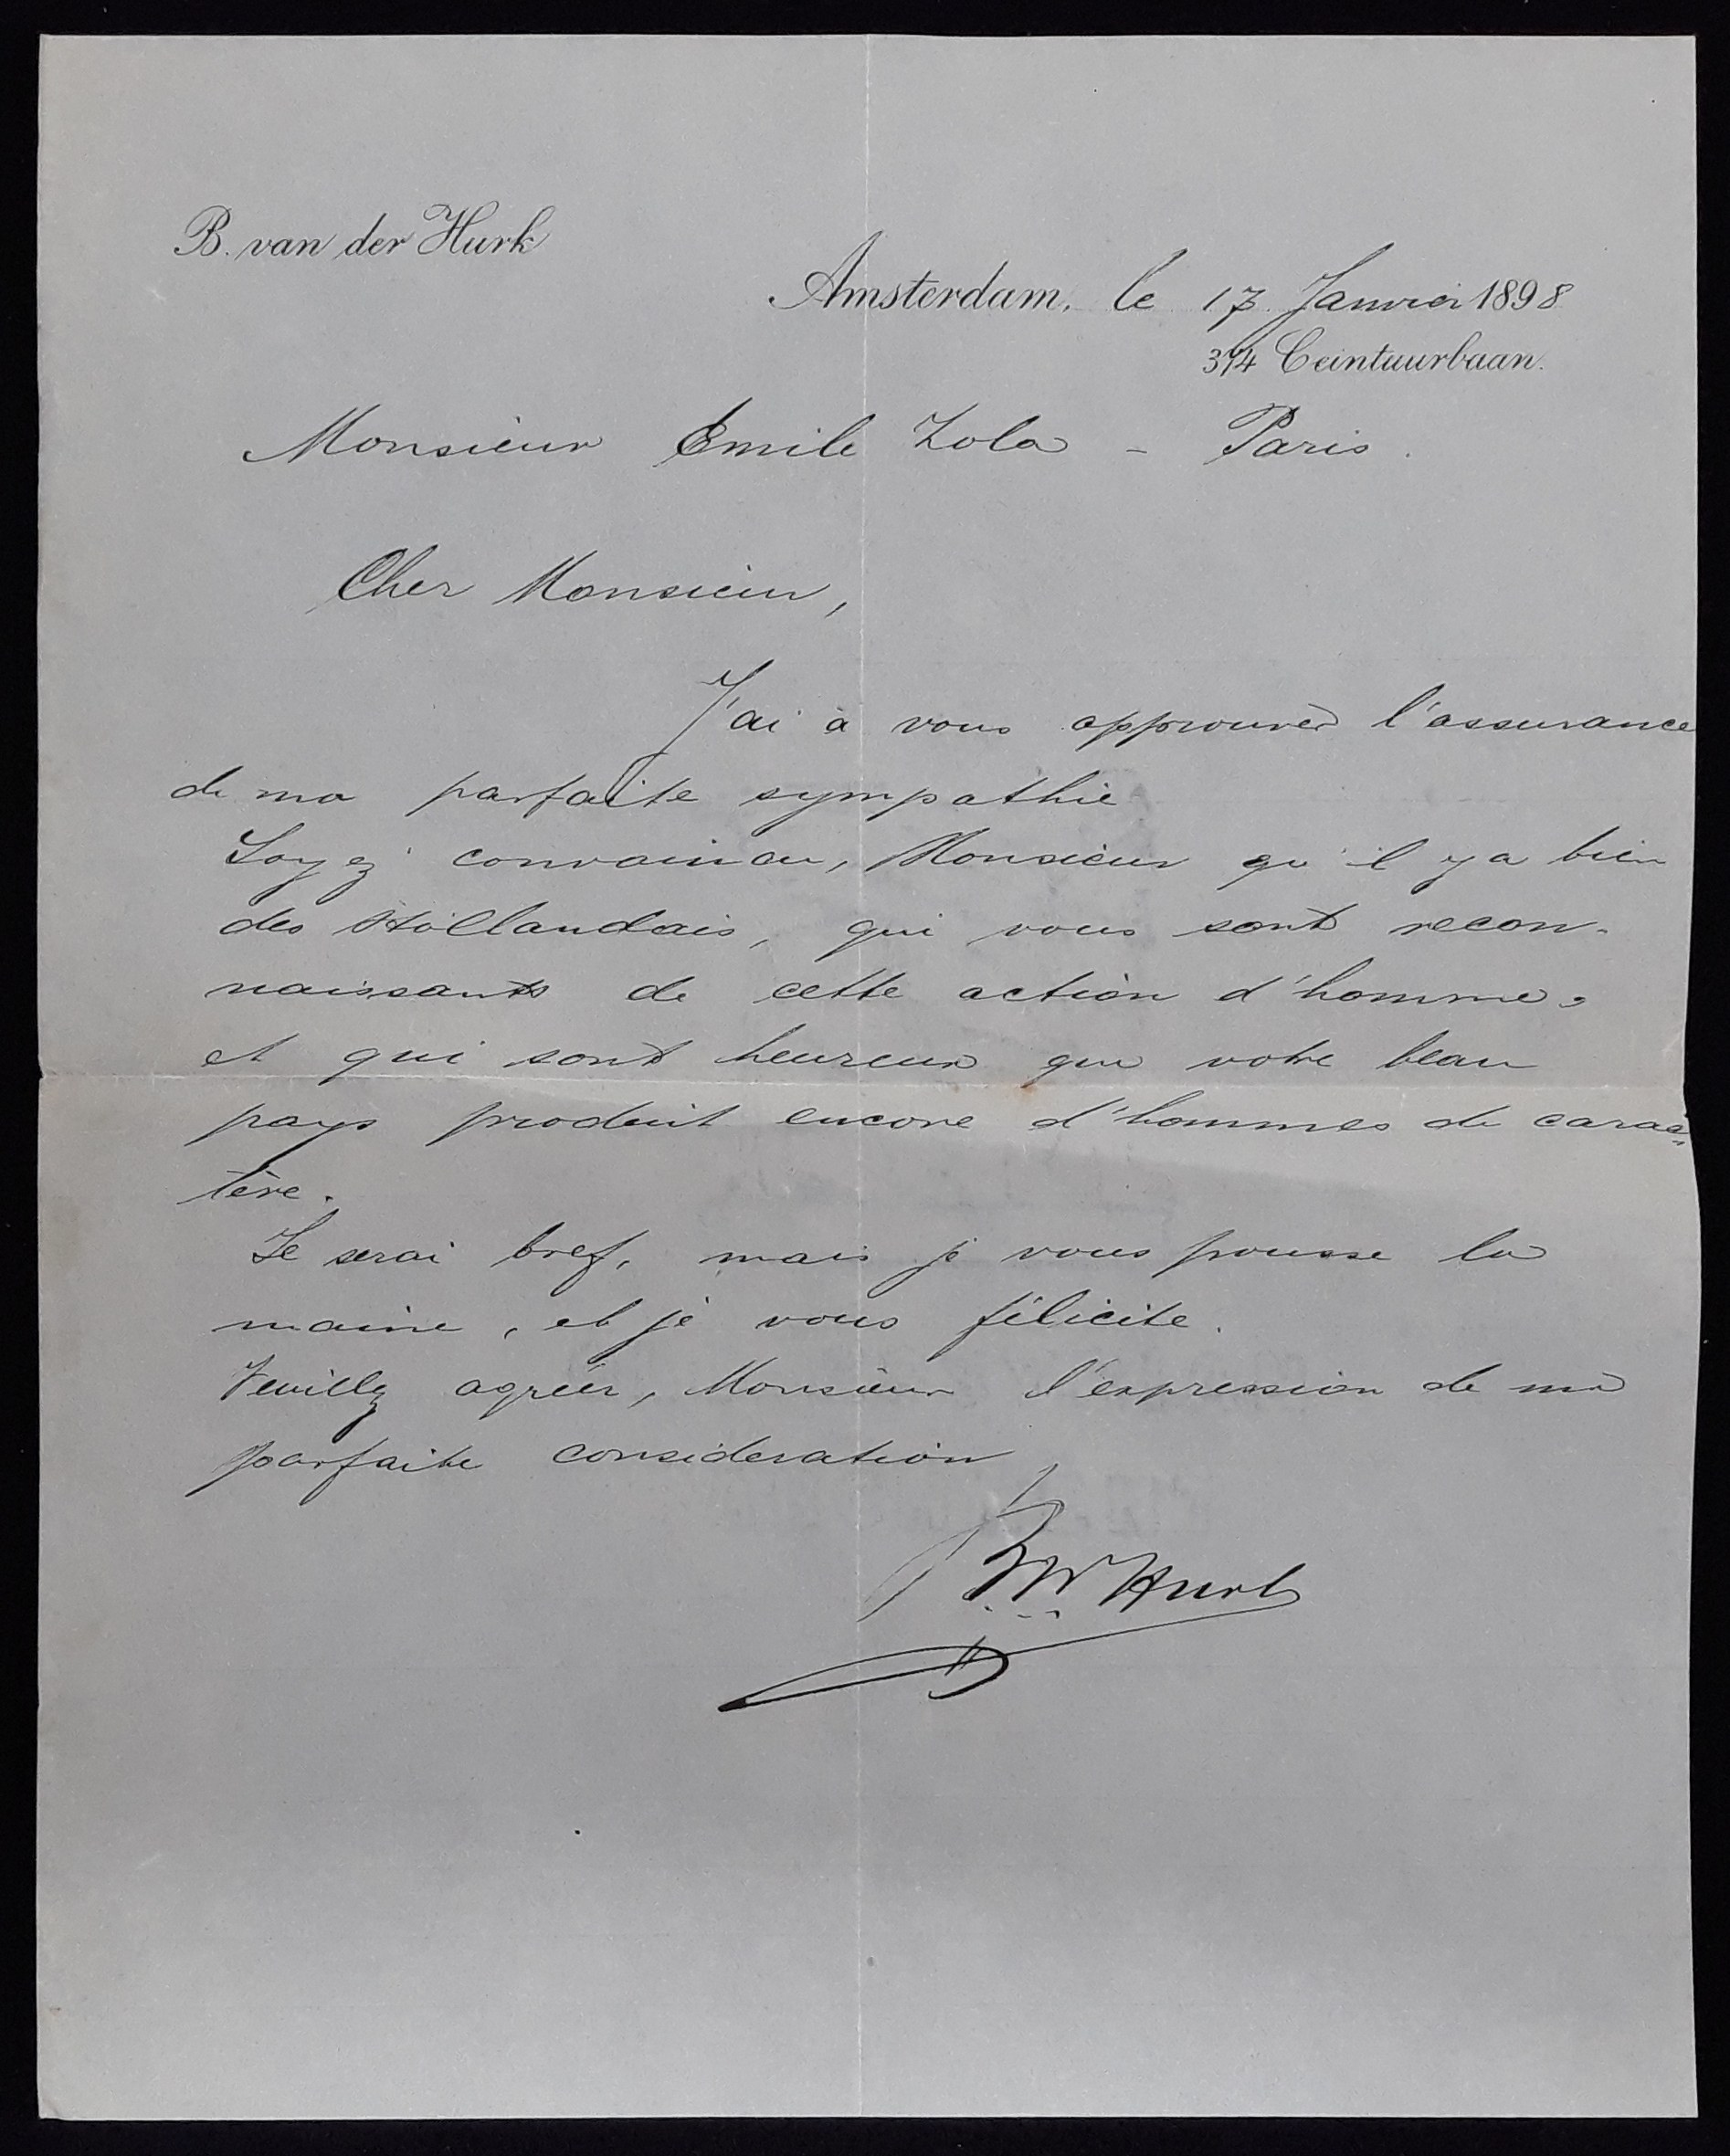 B. van der Hurk
Amsterdam, le 17 Janvier 1898
374 Ceintuurbaan.
Monsieur Emile Zola - Paris.
Cher Monsieur,
J'ai à vous approuver l'assurance
de ma parfaite sympathie
Soyez convaincu, Monsieur qu'il y a bien
des Hollandais, qui vous sont recon-
naissants de cette action d'homme,
et qui sont heureux que votre beau
pays produit encore d'hommes de carac=
tère.
Je serai bref, mais je vous pousse la
maine, et je vous félicite.
Veuillez agréer, Monsieur l'expression de ma
parfaite consideration
BvdHurk